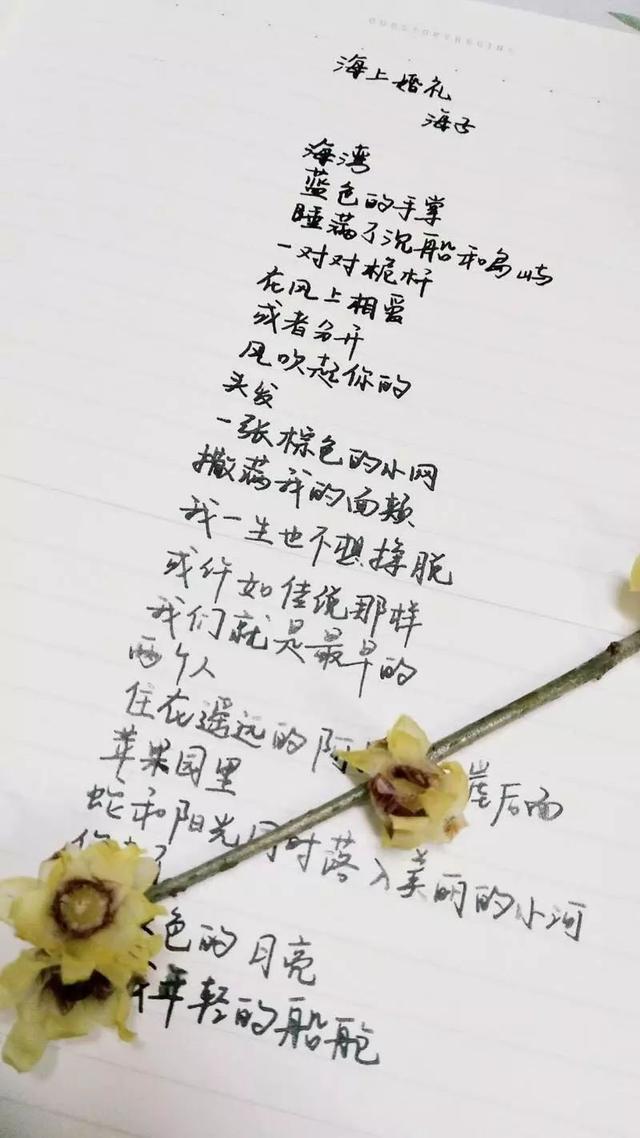 海上婚礼
海子
海湾
蓝色的手掌
睡满了沉船和岛屿
一对对桅杆
在风上相爱
或者分开
风吹起你的
头发
一张棕色的小网
撒满我的面颊
我一生也不想挣脱
或许如传说那样
我们就是最早的
两个人
住在遥远的阿 崖后面
苹果园里
蛇和阳光同时落入美丽的小河
你 了
色的月亮
年轻的船舱